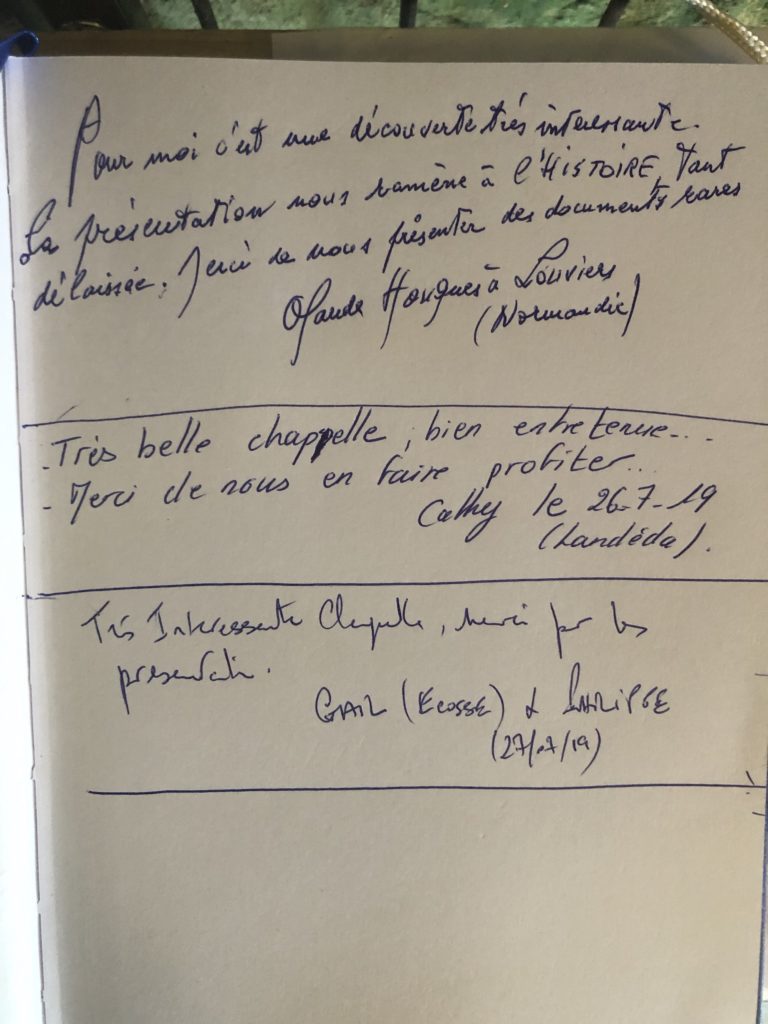 Pour moi c'est une découverte très intéressante.
La présentation nous ramène à l'HISTOIRE, tant
délaissée. Merci de nous présenter des documents rares
Claude à Louviers
(Normandie)
- Très belle chappelle, bien entretenue...
- Merci de nous en faire profiter...
Cathy le 26-7-19
(Landéda).
Très Interessante Chapelle, merci pour les
presentation.
GAIL (Ecosse) & PHILIPPE
(27/07/19)